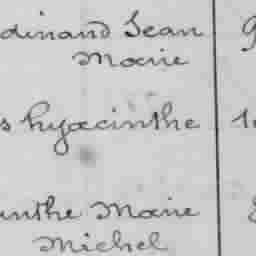 dinand Jean
Marie
s hyacinthe
inthe Marie
Michel